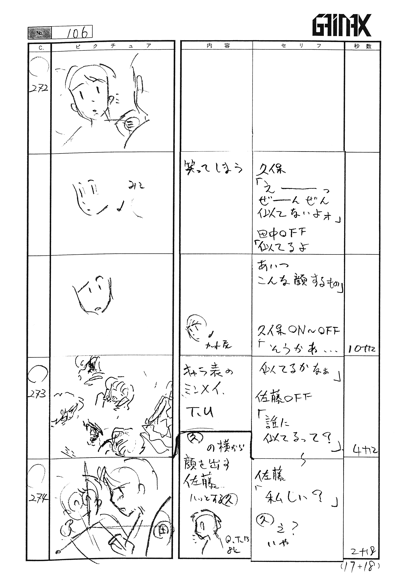 106
GAINAX
C.
ピクチュア
内容
セリフ
秒数
272
笑ってしまう
久保
「えーーっ
ぜーんぜん
似てないよォ」
田中OFF
「似てるよ
あいつ
こんな顔するもの」
久保ON〜OFF
「そうかぁ…
10+12
273
キャラ表の
ミンメイ
T.U
似てるかなぁ」
佐藤OFF
「誰に
似てるって?」
4+12
274
久の横から
顔を出す
佐藤
ハッとする久
佐藤
「私しぃ?」
久
いや
2+18
(17+18)